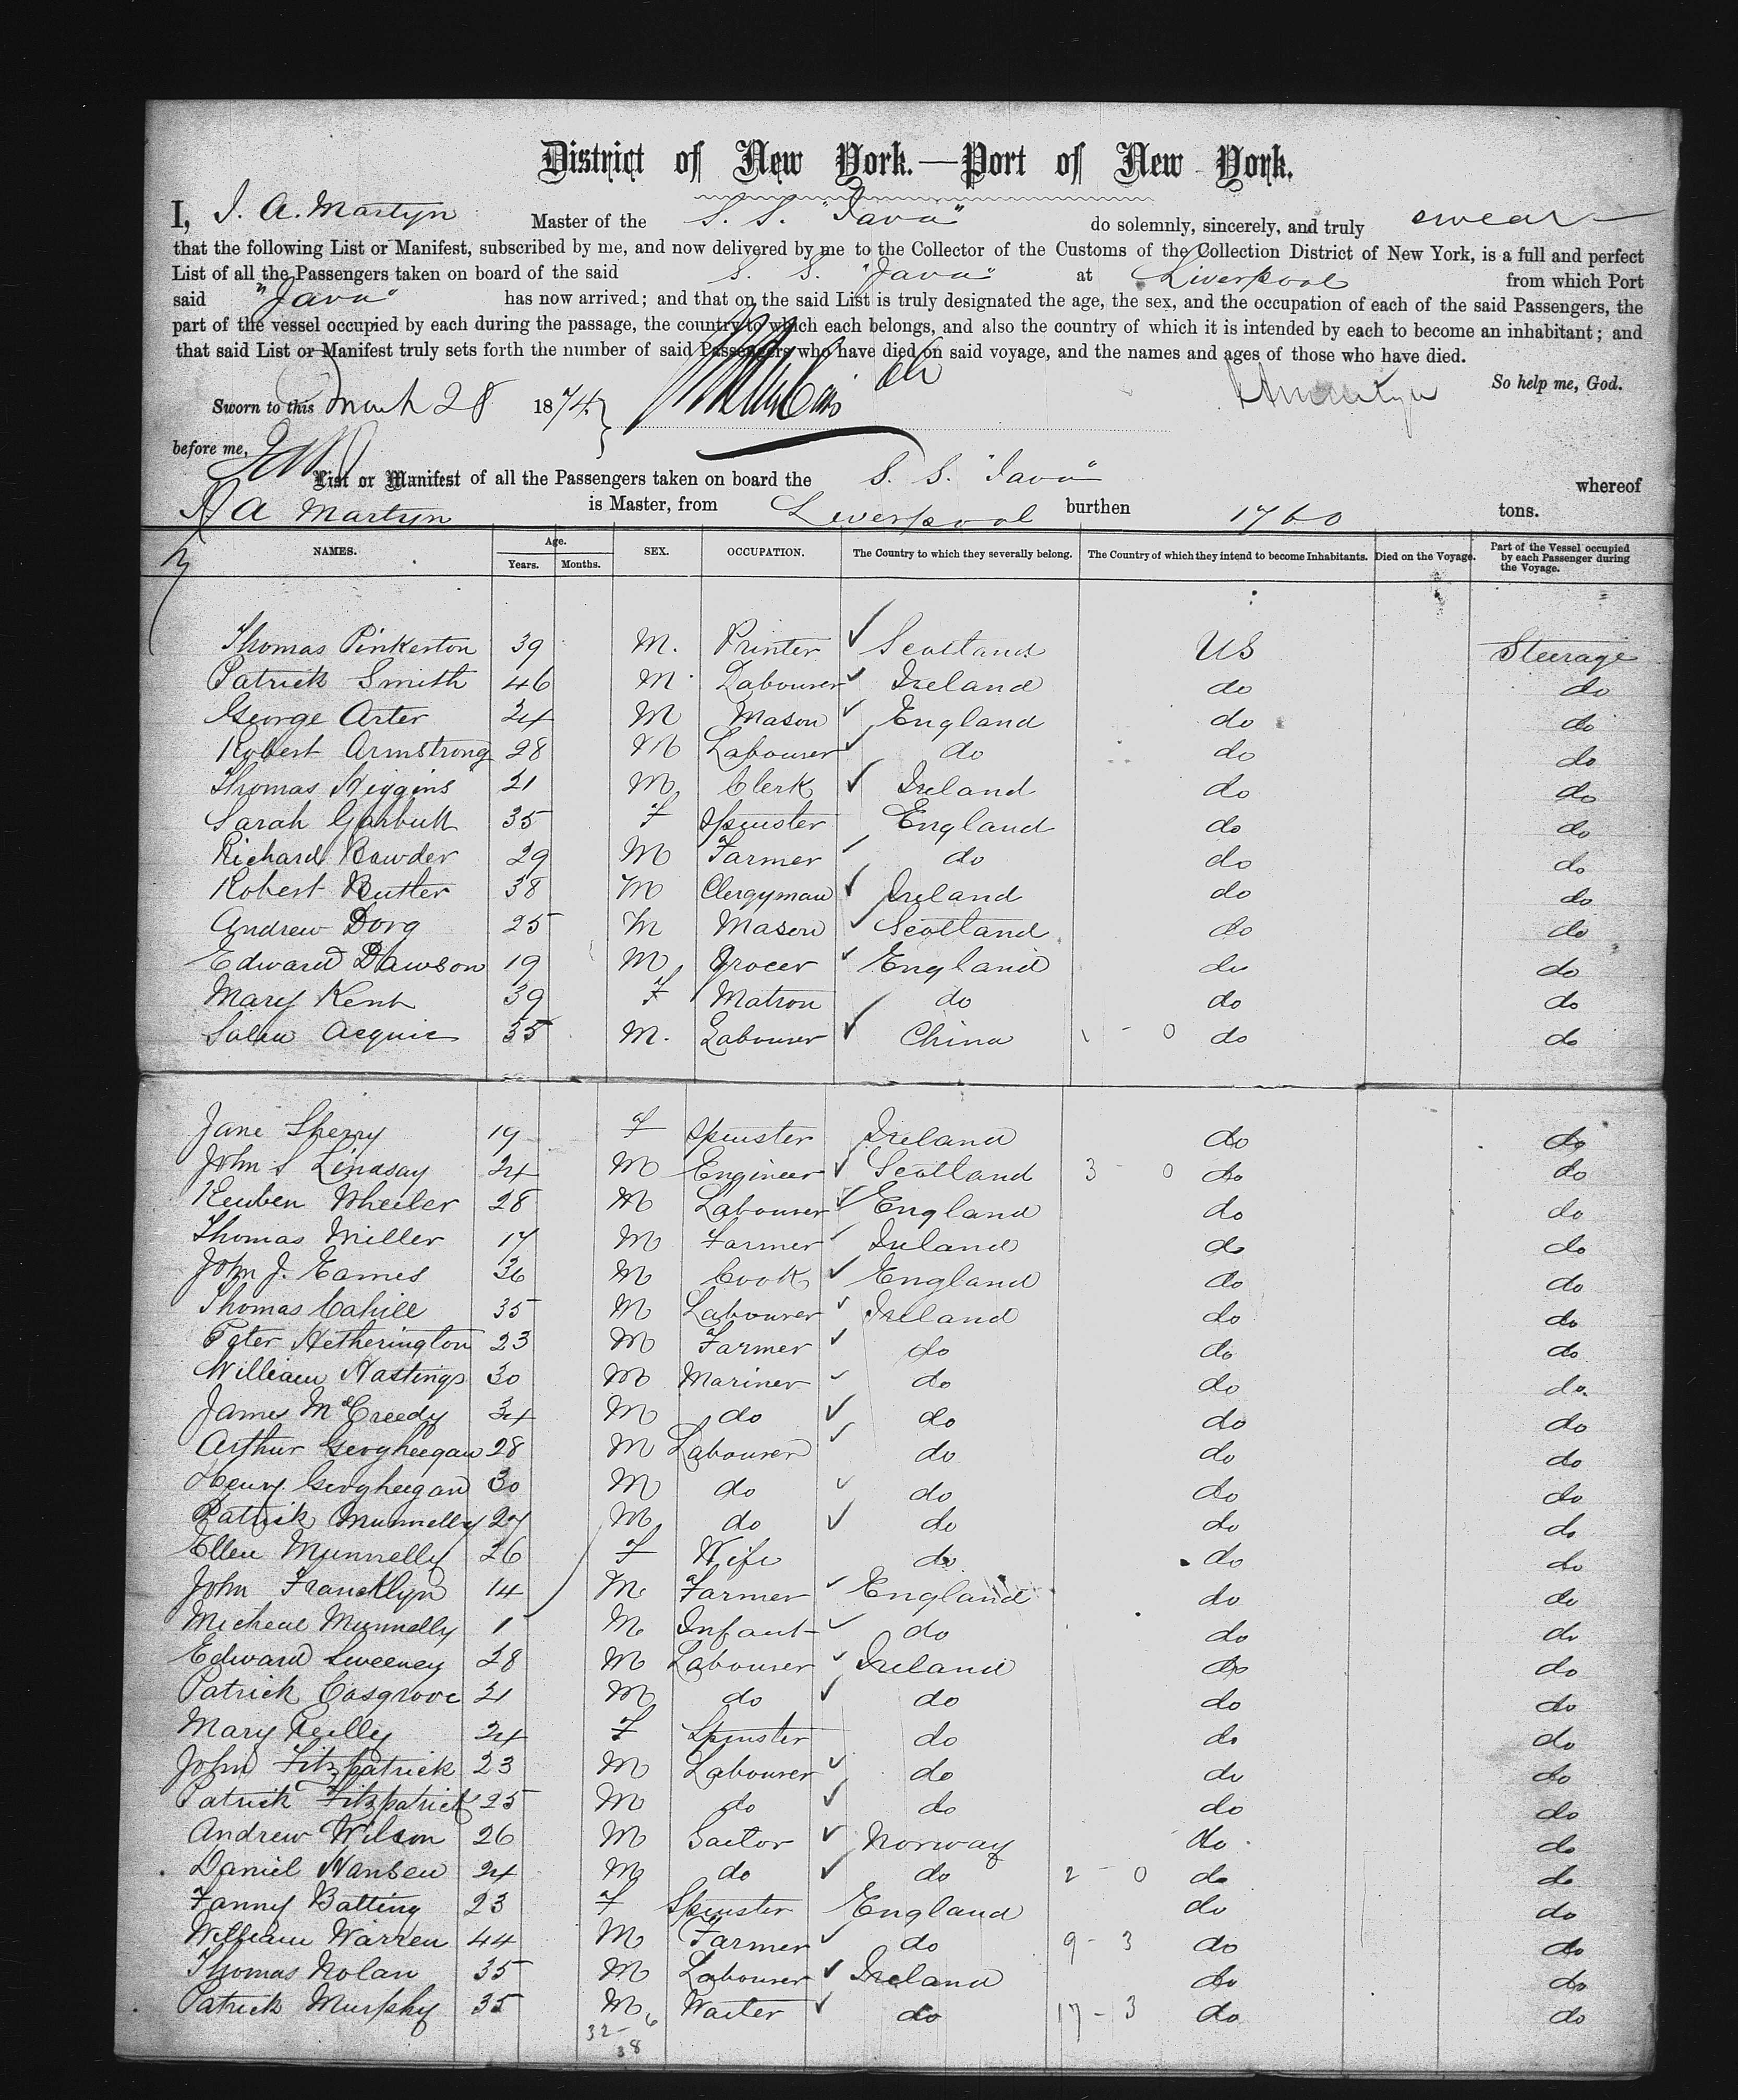 District of New York.—Port of New York.
I, J. A. Martyn Master of the S. S. "Java" do solemnly, sincerely, and truly swear
that the following List or Manifest, subscribed by me, and now delivered by me to the Collector of the Customs of the Collection District of New York, is a full and perfect
List of all the Passengers taken on board of the said S. S. "Java" at Liverpool from which Port
said "Java" has now arrived; and that on the said List is truly designated the age, the sex, and the occupation of each of the said Passengers, the
part of the vessel occupied by each during the passage, the country to which each belongs, and also the country of which it is intended by each to become an inhabitant; and
that said List or Manifest truly sets forth the number of said Passengers who have died on said voyage, and the names and ages of those who have died.
So help me, God.
Sworn to this March 28 1874 JAMartyn
before me,
List or Manifest of all the Passengers taken on board the S. S. "Java" whereof
J A Martyn is Master, from Liverpool burthen 1760 tons.
NAMES. Age. Years. Months. SEX. OCCUPATION. The Country to which they severally belong. The Country of which they intend to become Inhabitants. Died on the Voyage. Part of the Vessel occupied by each Passenger during the Voyage.
Thomas Pinkerton 39 M. Printer Scotland US Steerage
Patrick Smith 46 M Labourer Ireland do do
George Arter 24 M Mason England do do
Robert Armstrong 28 M Labourer do do do
Thomas Higgins 21 M. Clerk Ireland do do
Sarah Garbutt 35 F Spinster England do do
Richard Bawder 29 M Farmer do do do
Robert Butler 38 M Clergyman Ireland do do
Andrew Dorg 25 M Mason Scotland do do
Edward Dawson 19 M Grocer England do do
Mary Kent 39 F Matron do do do
Acquie 35 M. Labourer China 1 - 0 do do
Jane Sherry 19 F Spinster Ireland do do
John S Lindsay 24 M Engineer Scotland 3 - 0 do do
Reuben Wheeler 28 M Labourer England do do
Thomas Miller 17 M Farmer Ireland do do
John J. Eames 36 M Cook England do do
Thomas Cahill 35 M Labourer Ireland do do
Peter Hetherington 23 M Farmer do do do
William Hastings 30 M Mariner do do do
James McCreedy 34 M do do do do
Arthur Geogheegan 28 M Labourer do do do
Henry Geogheegan 30 M do do do do
Patrick Munnelly 27 M do do do do
Ellen Munnelly 26 F Wife do do do
John Francklyn 14 M Farmer England do do
Micheal Munnelly 1 M Infant do do do
Edward Sweeney 28 M Labourer Ireland do do
Patrick Cosgrove 21 M do do do do
Mary Reilly 24 F Spinster do do do
John Fitzpatrick 23 M Labourer do do do
Patrick Fitzpatrick 25 M do do do do
Andrew Wilson 26 M Sailor Norway do do
Daniel Hansen 24 M do do 2 - 0 do do
Fanny Batting 23 F Spinster England do do
William Warren 44 M Farmer do 9 - 3 do do
Thomas Nolan 35 M Labourer Ireland do do
Patrick Murphy 35 M Waiter do 17 - 3 do do
32 - 6
38